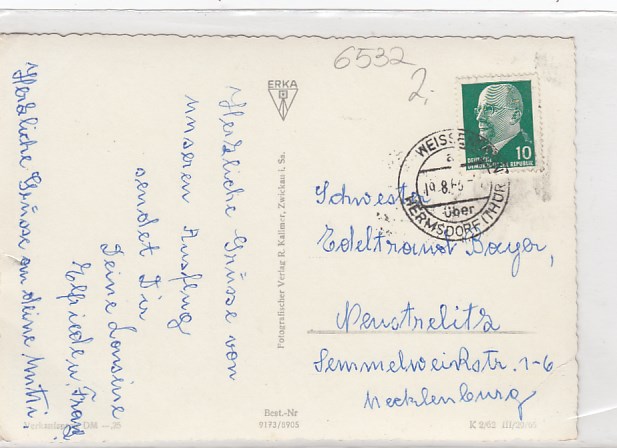 6532
2,-
ERKA
DEUTSCHE
DEMOKRATISCHE REPUBLIK
10
WEISSENBORN
a
19.8.65
über
HERMSDORF (THÜR)
Herzliche Grüsse von
unserem Ausflug
sendet Dir
Deine Cousine
Elfriede u. Franz
Herzliche Grüsse an deine Mutti
Schwester
Edeltraud Bayer,
Neustrelitz
Semmelweisstr. 1-6
Mecklenburg
Fotografischer Verlag R. Kallmer, Zwickau i. Sa.
Verkaufspr. DM -.25
Best.-Nr
9173/8905
K 2/62 III/29/65